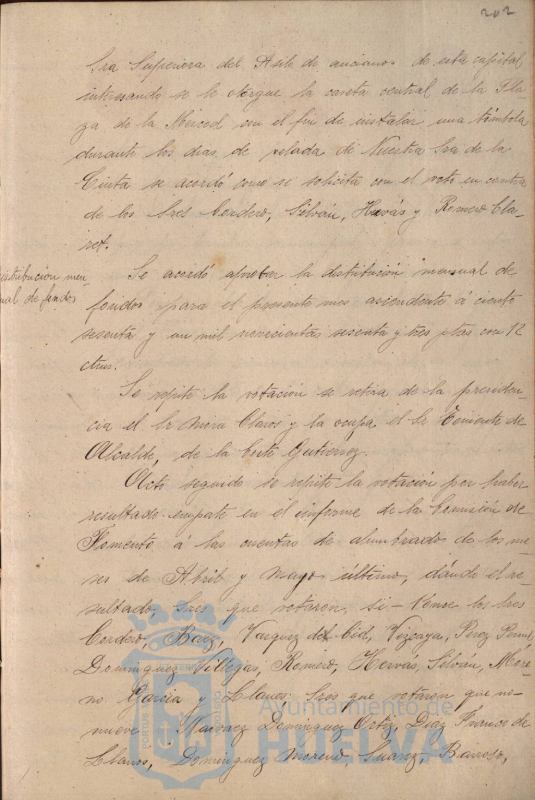 202
Sra Superiora del Asilo de ancianos de esta capital
interesando se le otorgue la caseta central de la Pla-
za de la Merced con el fin de instalar una tómbola
durante los dias de velada de Nuestra Sra de la
Cinta se acordó como se solicita con el voto en contra
de los Sres Cordero, Silván, Hervás y Romero Cla-
rot.
Distribucion men-
sual de fondos
Se acordó aprobar la distribución mensual de
fondos para el presente mes ascendente á ciento
sesenta y un mil novecientas sesenta y tres ptas con 12
ctms.
Se repite la votación se retira de la presiden-
cia el Sr Mora Claros y la ocupa el Sr Teniente de
Alcalde, de la Corte Gutierrez.
Acto seguido se repite la votación por haber
resultado empate en el informe de la Comisión de
Fomento á las cuentas de alumbrado de los me-
ses de Abril y Mayo último, dando el re-
sultado, Sres que votaron si - Once los Sres
Cordero, Baez, Vazquez del Cid, Vizcaya, Perez
Dominguez Villegas, Romero, Hervás, Silván, More-
no Garcia y Llanes: Sres que votaron que no-
nueve Narvaez Dominguez Ortiz, Diaz Franco de
Llanos, Dominguez Moreno, Suarez Barroso,
Ayuntamiento de
HUELVA